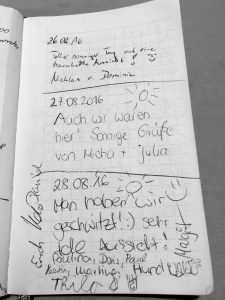 26.08.16
Toller sonniger Tag und eine
traumhafte Aussicht!
Nicklas u. Dominic
27.08.2016
Auch wir waren
hier! Sonnige Grüße
von Micha + Julia
28.08.16
Man haben wir
geschwitzt! :) sehr
tolle Aussicht!
Paulina, Dani, Pavel
Hund
Thilo